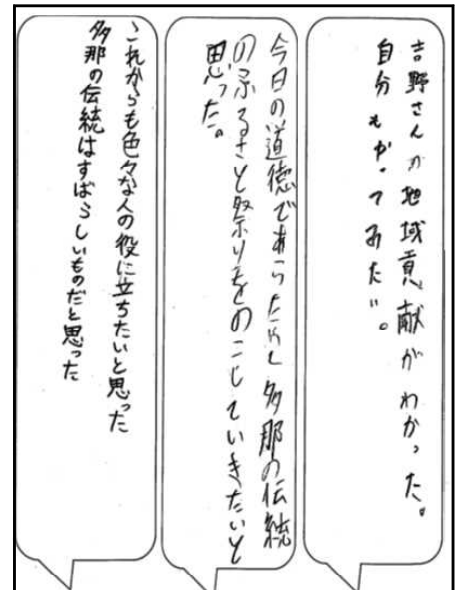 吉野さんが地域貢献がわかった。
自分もやってみたい。
今日の道徳であらためて多那の伝統
のふるさと祭りをのこしていきたいと
思った。
これからも色々な人の役に立ちたいと思った
多那の伝統はすばらしいものだと思った